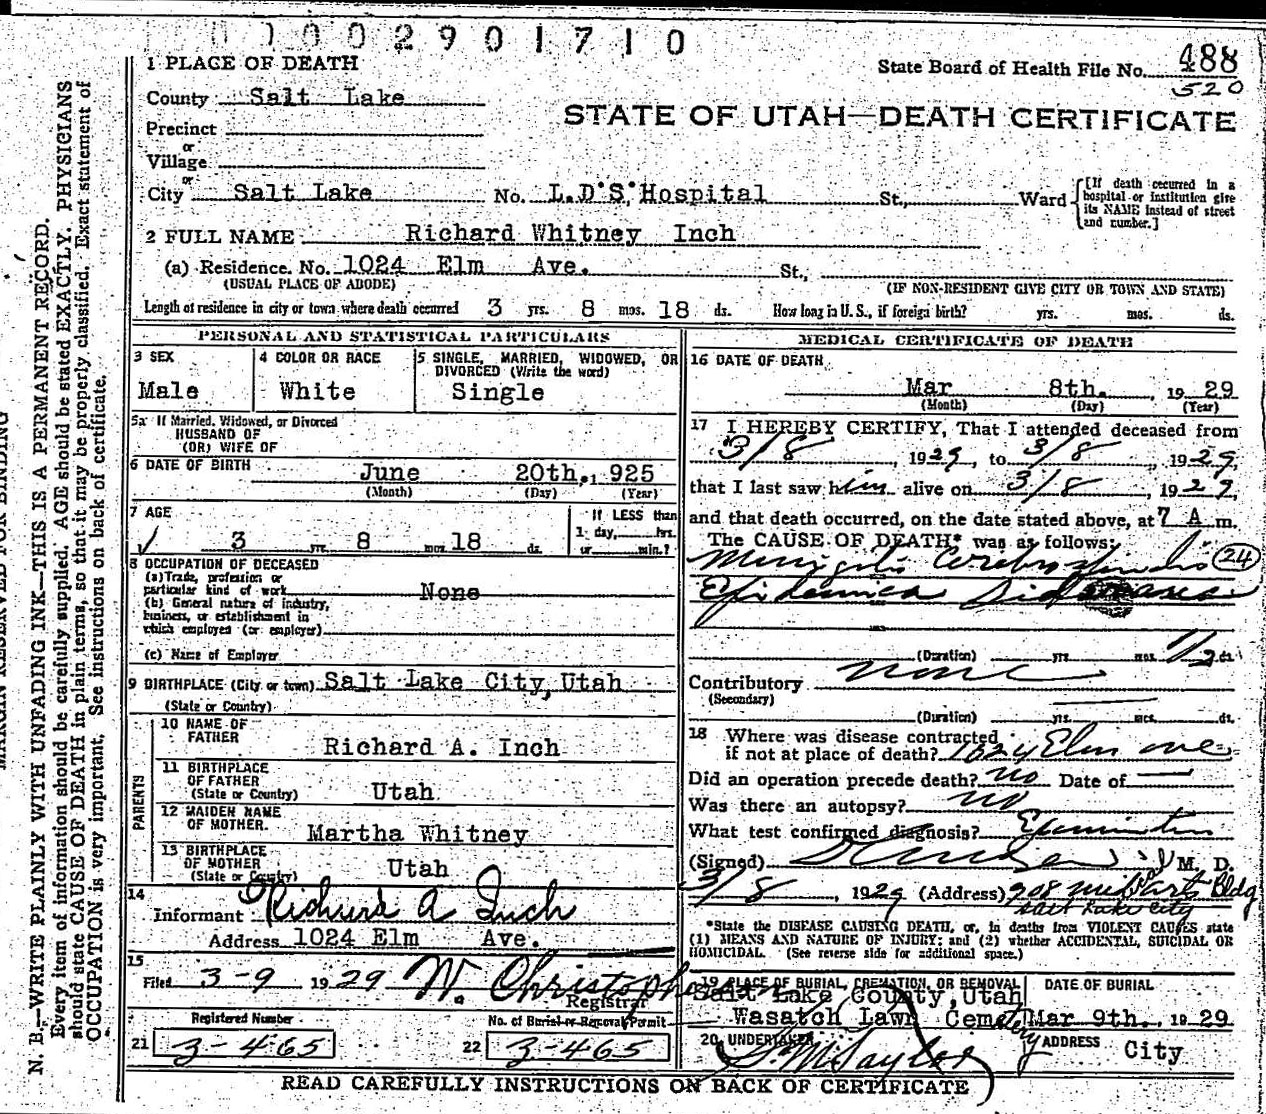 0 1 0 0 2 9 0 1 7 1 0
1 PLACE OF DEATH
State Board of Health File No. 488
520
County Salt Lake
STATE OF UTAH—DEATH CERTIFICATE
Precinct
or
Village
or
City Salt Lake No. L.D.S. Hospital St., Ward [If death occurred in a hospital or institution give its NAME instead of street and number.]
2 FULL NAME Richard Whitney Inch
(a) Residence. No. 1024 Elm Ave. St.,
(USUAL PLACE OF ABODE) (IF NON-RESIDENT GIVE CITY OR TOWN AND STATE)
Length of residence in city or town where death occurred 3 yrs. 8 mos. 18 ds. How long in U. S., if foreign birth? yrs. mos. ds.
PERSONAL AND STATISTICAL PARTICULARS
3 SEX 4 COLOR OR RACE 5 SINGLE, MARRIED, WIDOWED, OR
DIVORCED (Write the word)
Male White Single
5a If Married, Widowed, or Divorced
HUSBAND OF
(OR) WIFE OF
6 DATE OF BIRTH June 20th, 1925
(Month) (Day) (Year)
7 AGE If LESS than
1 day, hrs.
3 yrs. 8 mos. 18 ds. or min.?
8 OCCUPATION OF DECEASED
(a) Trade, profession or
particular kind of work None
(b) General nature of industry,
business, or establishment in
which employed (or employer)
(c) Name of Employer
9 BIRTHPLACE (City or town) Salt Lake City, Utah
(State or Country)
PARENTS
10 NAME OF
FATHER Richard A. Inch
11 BIRTHPLACE
OF FATHER
(State or Country) Utah
12 MAIDEN NAME
OF MOTHER Martha Whitney
13 BIRTHPLACE
OF MOTHER
(State or Country) Utah
14
Informant Richard A Inch
Address 1024 Elm Ave.
15
Filed 3-9 1929 W. Christopherson
Registrar
Registered Number No. of Burial or Removal Permit
21 3-465 22 3-465
MEDICAL CERTIFICATE OF DEATH
16 DATE OF DEATH
Mar 8th. 1929
(Month) (Day) (Year)
17 I HEREBY CERTIFY, That I attended deceased from
3/8, 1929, to 3/8, 1929,
that I last saw him alive on 3/8, 1929,
and that death occurred, on the date stated above, at 7 A m.
The CAUSE OF DEATH* was as follows:
Meningitis Cerebrospinalis 24
Epidemica
(Duration) yrs. mos. 1/2 ds.
Contributory none
(Secondary)
(Duration) yrs. mos. ds.
18 Where was disease contracted
if not at place of death? 1024 Elm ave
Did an operation precede death? no Date of
Was there an autopsy? no
What test confirmed diagnosis? Examination
(Signed) M. D.
3/8, 1929 (Address) 908 Bldg
Salt Lake City
*State the DISEASE CAUSING DEATH, or, in deaths from VIOLENT CAUSES state
(1) MEANS AND NATURE OF INJURY; and (2) whether ACCIDENTAL, SUICIDAL OR
HOMICIDAL. (See reverse side for additional space.)
19 PLACE OF BURIAL, CREMATION, OR REMOVAL DATE OF BURIAL
Salt Lake County, Utah
Wasatch Lawn Cemetery Mar 9th. 1929
20 UNDERTAKER ADDRESS
City
READ CAREFULLY INSTRUCTIONS ON BACK OF CERTIFICATE
MARGIN RESERVED FOR BINDING
N. B.—WRITE PLAINLY WITH UNFADING INK—THIS IS A PERMANENT RECORD.
Every item of information should be carefully supplied. AGE should be stated EXACTLY. PHYSICIANS
should state CAUSE OF DEATH in plain terms, so that it may be properly classified. Exact statement of
OCCUPATION is very important. See instructions on back of certificate.